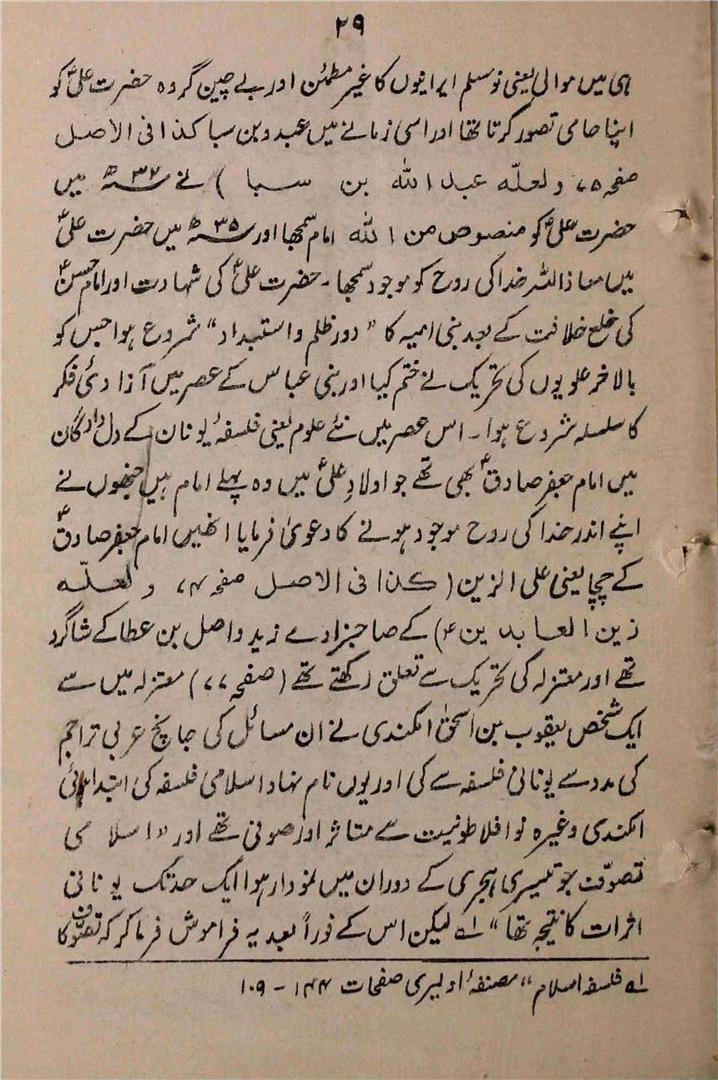 ۲۹
ہی میں موالی یعنی نو مسلم ایرانیوں کا غیر مطمئن اور بے چین گروہ حضرت علیؑ کو
اپنا حامی تصور کرتا تھا اور اسی زمانے میں عبدو بن سبا کذا فی الاصل
صفحہ ۷۵، ولعلّہ عبد اللہ بن سبا ) نے ۳۲ھ میں
حضرت علیؑ کو منصوص من اللہ امام سمجھا اور ۳۵ھ میں حضرت علیؑ
میں معاذ اللہ خدا کی روح کو موجود سمجھا۔ حضرت علیؑ کی شہادت اور امام حسنؑ
کی خلع خلافت کے بعد بنی امیہ کا ”دور ظلم و استبداد“ شروع ہوا جس کو
بالآخر علویوں کی تحریک نے ختم کیا اور بنی عباس کے عصر میں آزادئ فکر
کا سلسلہ شروع ہوا۔ اس عصر میں نئے علوم یعنی فلسفۂ یونان کے دل دادگان
میں امام جعفر صادقؑ بھی تھے جو اولادِ علیؑ میں وہ پہلے امام ہیں جنھوں نے
اپنے اندر خدا کی روح موجود ہونے کا دعویٰ فرمایا انھیں امام جعفر صادقؑ
کے چچا یعنی علی الزین (کذا فی الاصل صفحہ ۷۴، ولعلّہ
زین العابدینؑ) کے صاحبزادے زید واصل بن عطا کے شاگرد
تھے اور معتزلہ کی تحریک سے تعلق رکھتے تھے (صفحہ ۷۷) معتزلہ میں سے
ایک شخص یعقوب بن اسحٰق الکندی نے ان مسائل کی جانچ عربی تراجم
کی مدد سے یونانی فلسفہ سے کی اور یوں نام نہاد اسلامی فلسفہ کی ابتدا
الکندی وغیرہ نو افلاطونیت سے متاثر اور صوفی تھے اور ”اسلامی
تصوّف جو تیسری ہجری کے دوران میں نمودار ہوا ایک حد تک یونانی
اثرات کا نتیجہ تھا“ لے لیکن اس کے فوراً بعد یہ فراموش فرما کر کہ تصوف کا
لے فلسفہ اسلام“ مصنفۂ اولیری صفحات ۱۴۴ - ۱۰۹